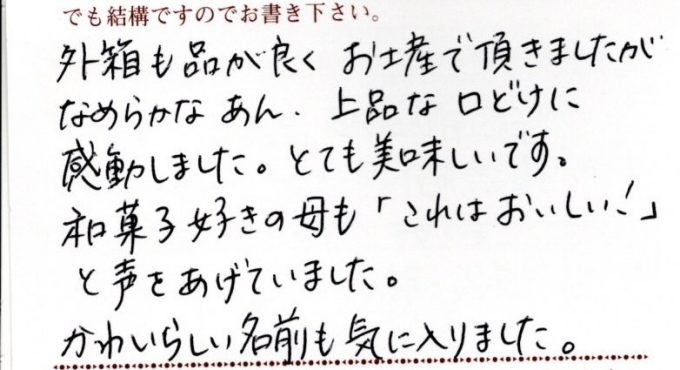 でも結構ですのでお書き下さい。
外箱も品が良く お土産で頂きましたが
なめらかな あん、上品な 口どけに
感動しました。とても美味しいです。
和菓子好きの母も「これはおいしい!」
と声をあげていました。
かわいらしい名前も気に入りました。